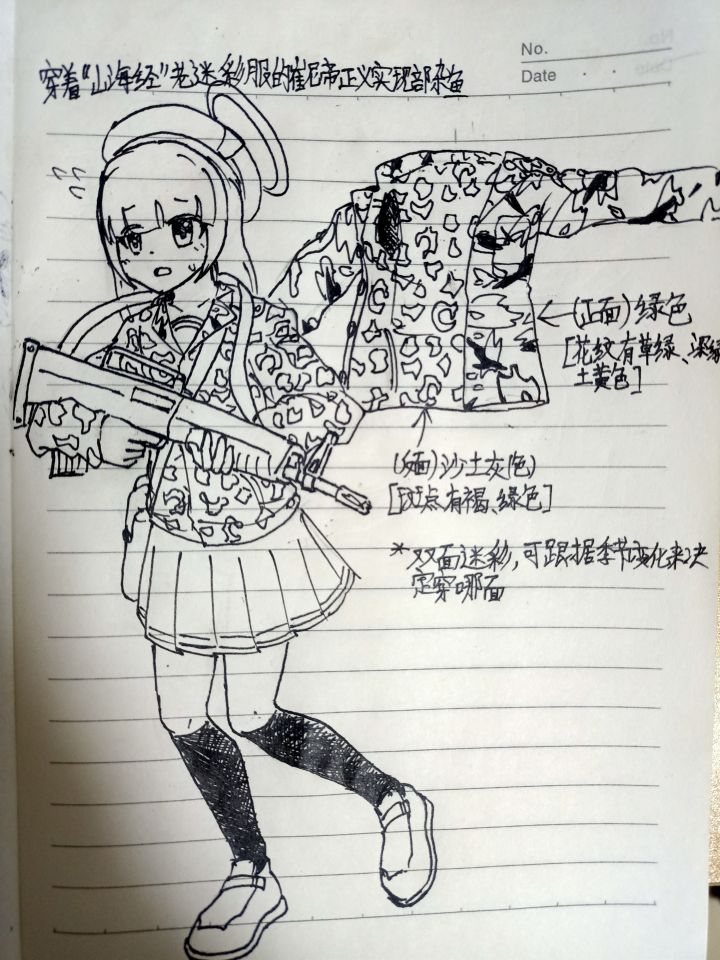 No.
Date
穿着“山海经”老迷彩服的崔尼蒂正义实现部杂鱼
(正面)绿色
[花纹有草绿、深绿
土黄色]
(面)沙土灰色
[斑点有褐、绿色]
*双面迷彩,可跟据季节变化来决
定穿哪面